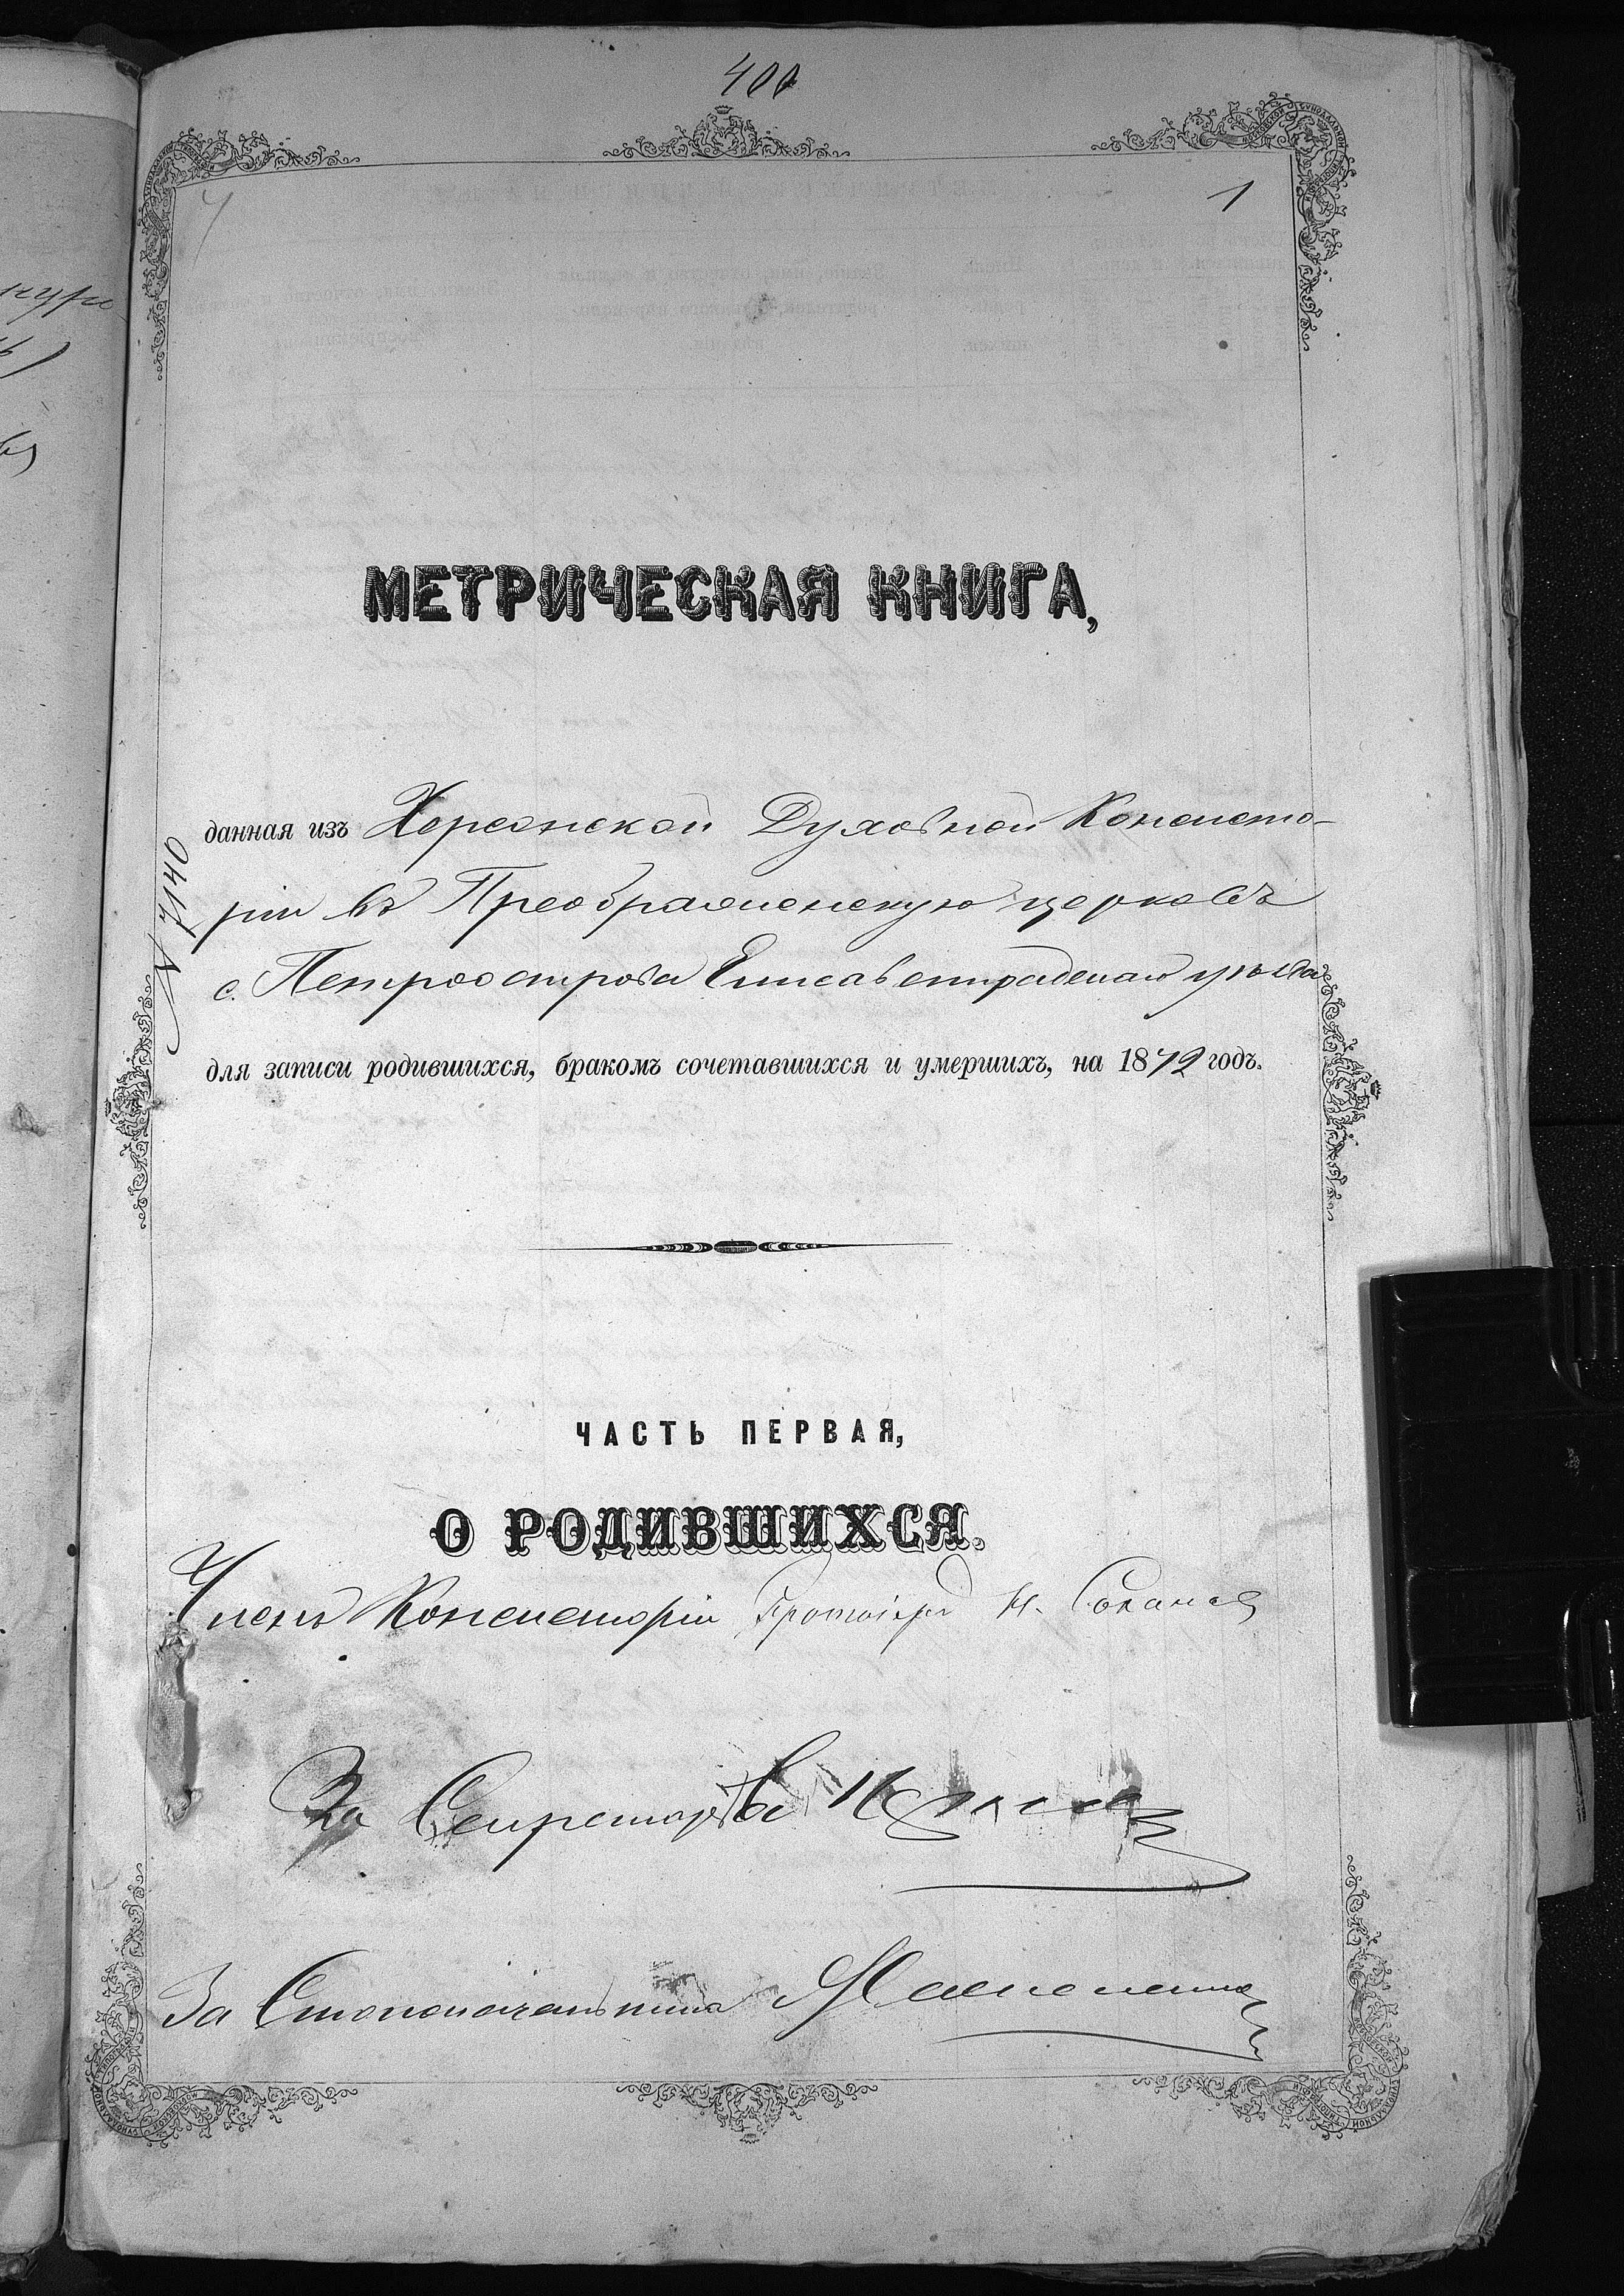 400
1
МЕТРИЧЕСКАЯ КНИГА,
данная изъ Херсонской Духовной Консисто-
ріи въ Преображенскую церковь
с. Петроострова Елисаветградскаго уѣзда
№ 7140
для записи родившихся, бракомъ сочетавшихся и умершихъ, на 1872 годъ.
ЧАСТЬ ПЕРВАЯ,
О РОДИВШИХСЯ.
Членъ Консисторіи Протоіерей Н.
За Секретаря
За Столоначальника